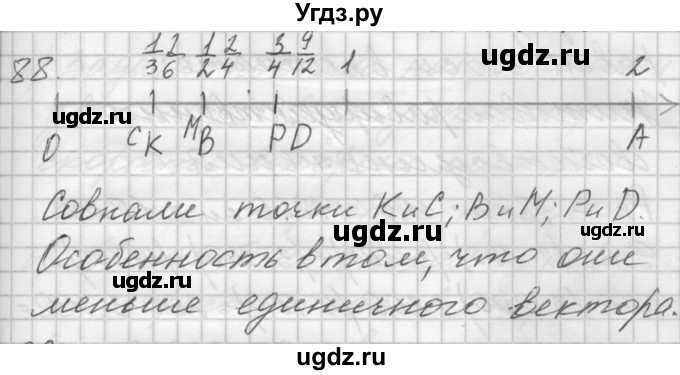 Угдз.ру
88. 1/3 2/6 1/2 2/4 3/4 9/12 1 2
O C K M B P D A
Совпали точки К и С; В и М; Р и D.
Особенность в том, что они
меньше единичного вектора.
ugdz.ru ugdz.ru ugdz.ru
ugdz.ru ugdz.ru
ugdz.ru ugdz.ru
ugdz.ru ugdz.ru
ugdz.ru